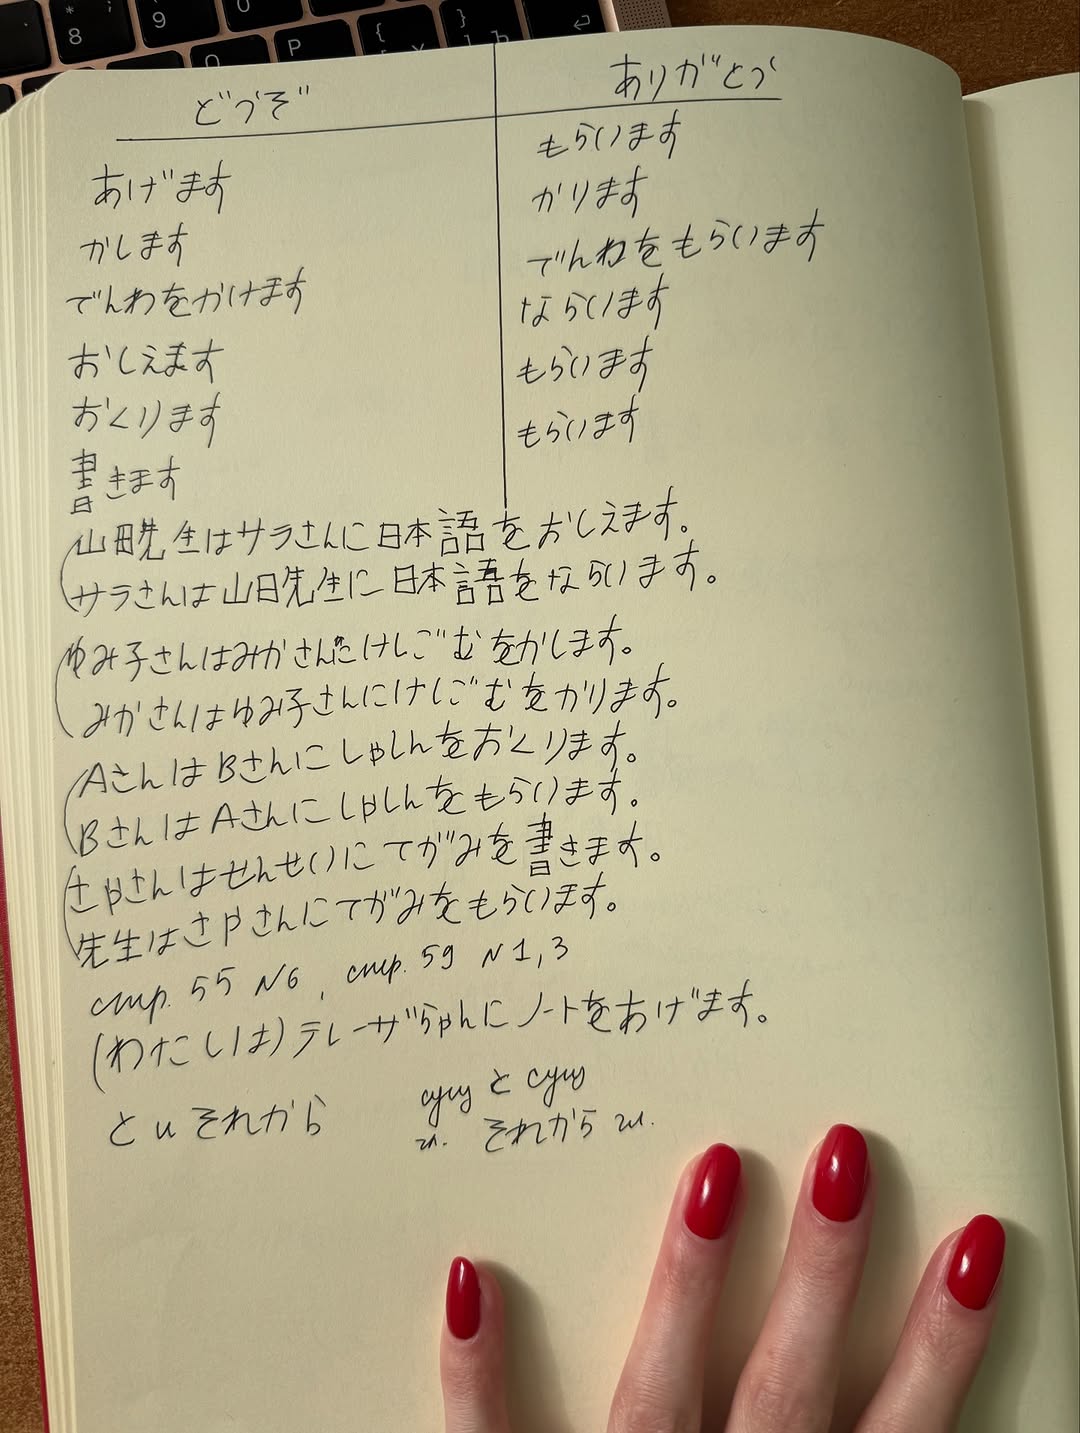 8 9 0
O P { [ } ]
どうぞ
ありがとう
あげます
もらいます
かします
かります
でんわをかけます
でんわをもらいます
おしえます
ならいます
おくります
もらいます
書きます
もらいます
山田先生はサラさんに日本語をおしえます。
サラさんは山日先生に日本語をならいます。
ゆみ子さんはみかさんにけしごむをかします。
みかさんはゆみ子さんにけしごむをかります。
AさんはBさんにしゃしんをおくります。
BさんはAさんにしゃしんをもらいます。
さやさんはせんせいにてがみを書きます。
先生はさやさんにてがみをもらいます。
стр. 55 N6, стр. 59 N1,3
(わたしは)テレーザちゃんにノートをあげます。
と и それから
сущ と сущ
гл. それから гл.